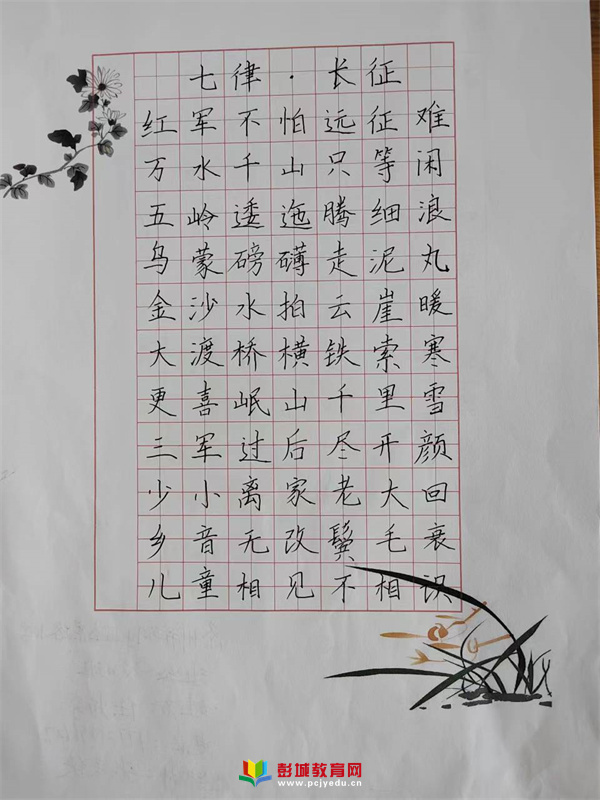 七律·长征
红军不怕远征难
万水千山只等闲
五岭逶迤腾细浪
乌蒙磅礴走泥丸
金沙水拍云崖暖
大渡桥横铁索寒
更喜岷山千里雪
三军过后尽开颜
少小离家老大回
乡音无改鬓毛衰
儿童相见不相识
彭城教育网
www.pcjyedu.cn